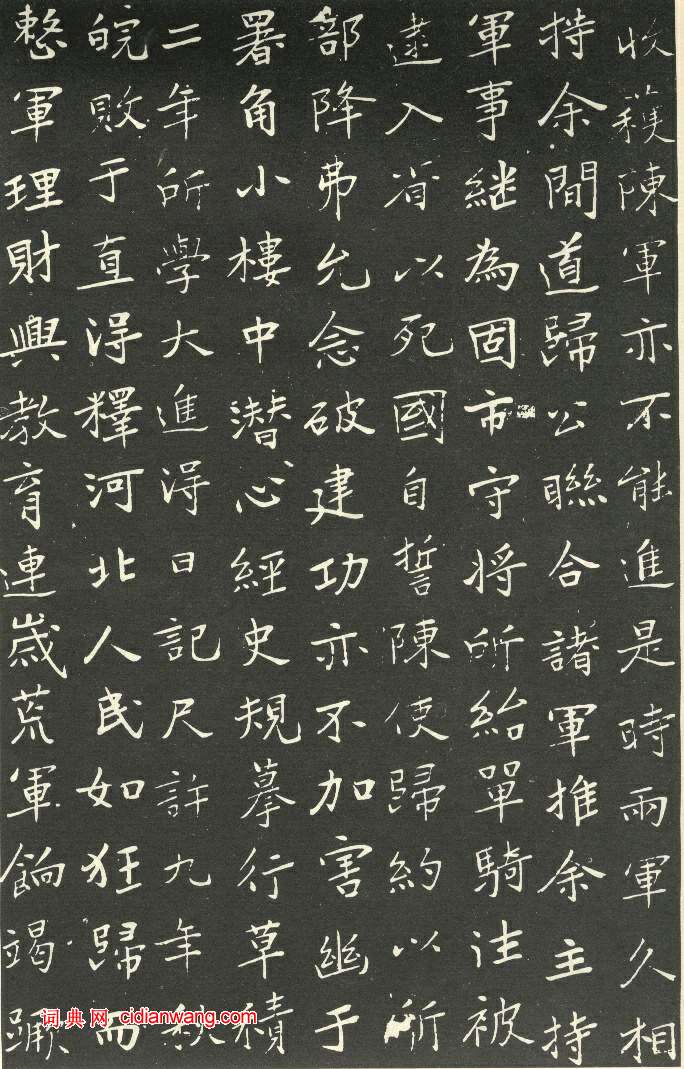 收穫陳軍亦不能進是時兩軍久相
持余間道歸公聯合諸軍推余主持
軍事繼為固市守將所紿單騎往被
逮入省以死國自誓陳使歸約以所
部降弗允念破建功亦不加害幽于
署角小樓中潛心經史規摹行草積
二年所學大進得日記尺許九年秋
皖敗于直得釋河北人民如狂歸而
整軍理財興教育連歲荒軍餉竭蹶
词典网 cidianwang.com